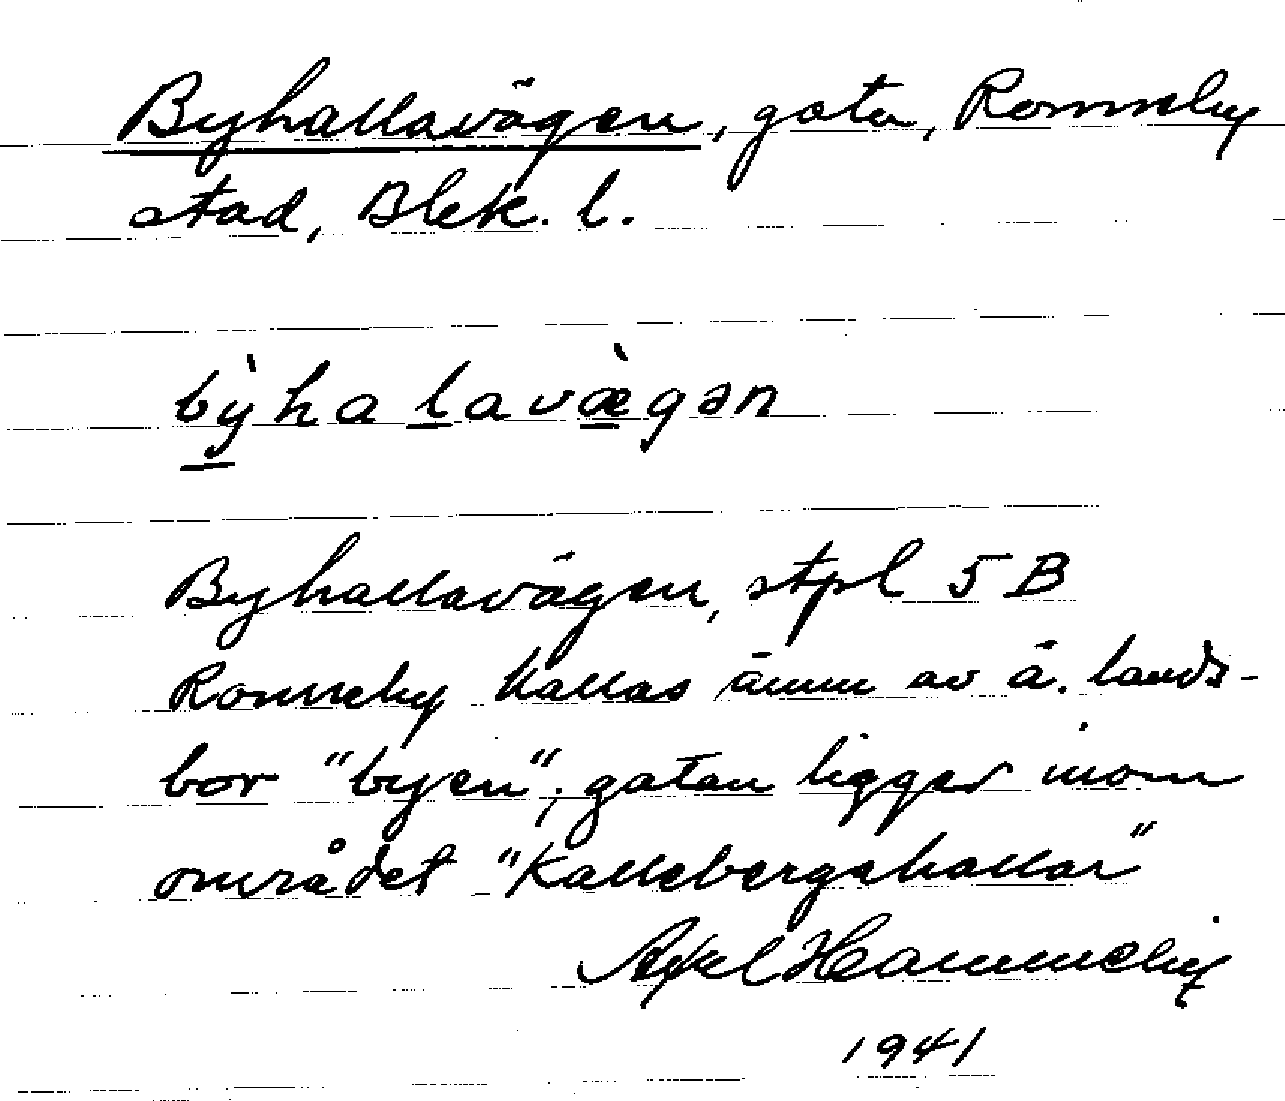 Byhallavägen, gata, Ronneby
stad, Blek. l.
bỳhalavæ̀gən
Byhallavägen, stpl 5 B
Ronneby kallas ännu av ä. lands-
bor "byen"; gatan ligger inom
området "Kallebergahallar"
Axel Hammelig
1941